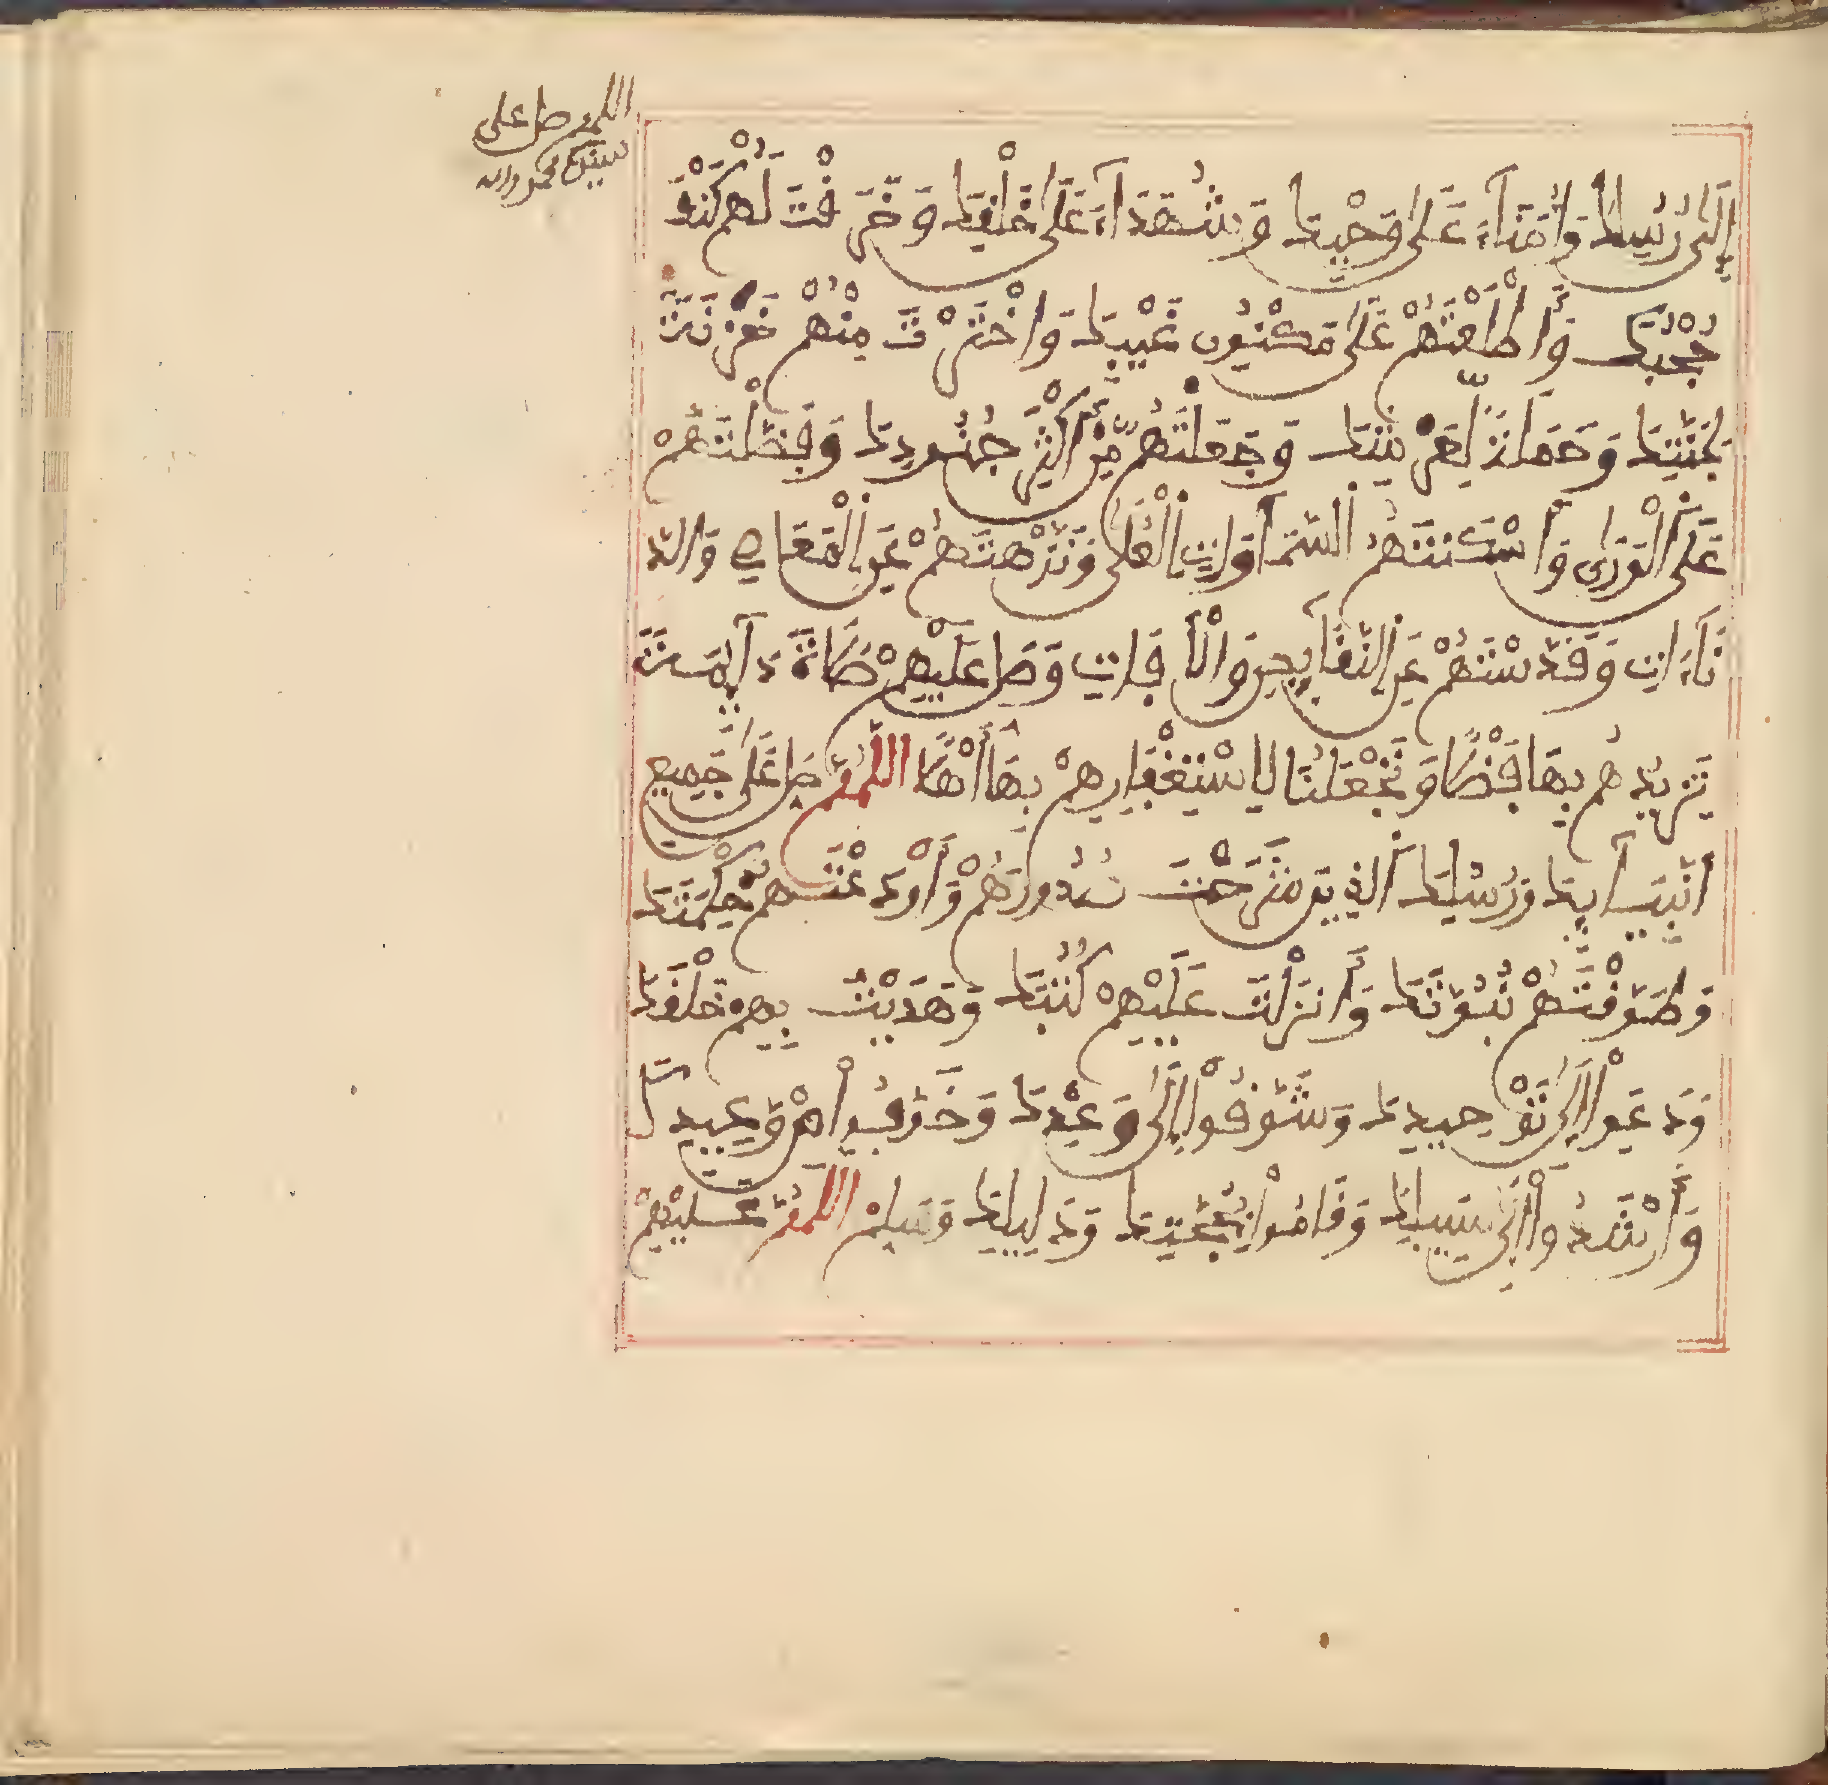 اللهم صل على
سيدنا محمد واله
إِلَى رُسُلِكَ وَأُمَنَاءَ عَلَى وَحْيِكَ وَشُهَدَاءَ عَلَى خَلْقِكَ وَخَرَقْتَ لَهُمْ كُنُفَ
حُجُبِكَ وَأَطْلَعْتَهُمْ عَلَى مَكْنُونِ غَيْبِكَ وَاخْتَرْتَ مِنْهُمْ خَزَنَةً
لِجَنَّتِكَ وَحَمَلَةً لِعَرْشِكَ وَجَعَلْتَهُمْ مِنْ أَكْثَرِ جُنُودِكَ وَفَضَّلْتَهُمْ
عَلَى الْوَرَى وَأَسْكَنْتَهُمُ السَّمَاوَاتِ الْعُلَى وَنَزَّهْتَهُمْ عَنِ الْمَعَاصِي وَالدَّ
نَاءَاتِ وَقَدَّسْتَهُمْ عَنِ النَّقَائِصِ وَالْآفَاتِ وَصَلِّ عَلَيْهِمْ صَلَاةً دَائِمَةً
تَزِيدُهُمْ بِهَا فَضْلًا وَتَجْعَلُنَا لِاسْتِغْفَارِهِمْ بِهَا أَهْلًا اللَّهُمَّ صَلِّ عَلَى جَمِيعِ
أَنْبِيَائِكَ وَرُسُلِكَ الَّذِينَ شَرَحْتَ صُدُورَهُمْ وَأَوْدَعْتَهُمْ حِكْمَتَكَ
وَطَوَّقْتَهُمْ نُبُوَّتَكَ وَأَنْزَلْتَ عَلَيْهِمْ كُتُبَكَ وَهَدَيْتَ بِهِمْ خَلْقَكَ
وَدَعَوْا إِلَى تَوْحِيدِكَ وَشَوَّقُوا إِلَى وَعْدِكَ وَخَوَّفُوا مِنْ وَعِيدِكَ
وَأَرْشَدُوا إِلَى سَبِيلِكَ وَقَامُوا بِحُجَّتِكَ وَدَلِيلِكَ وَسَلِّمِ اللَّهُمَّ عَلَيْهِمْ